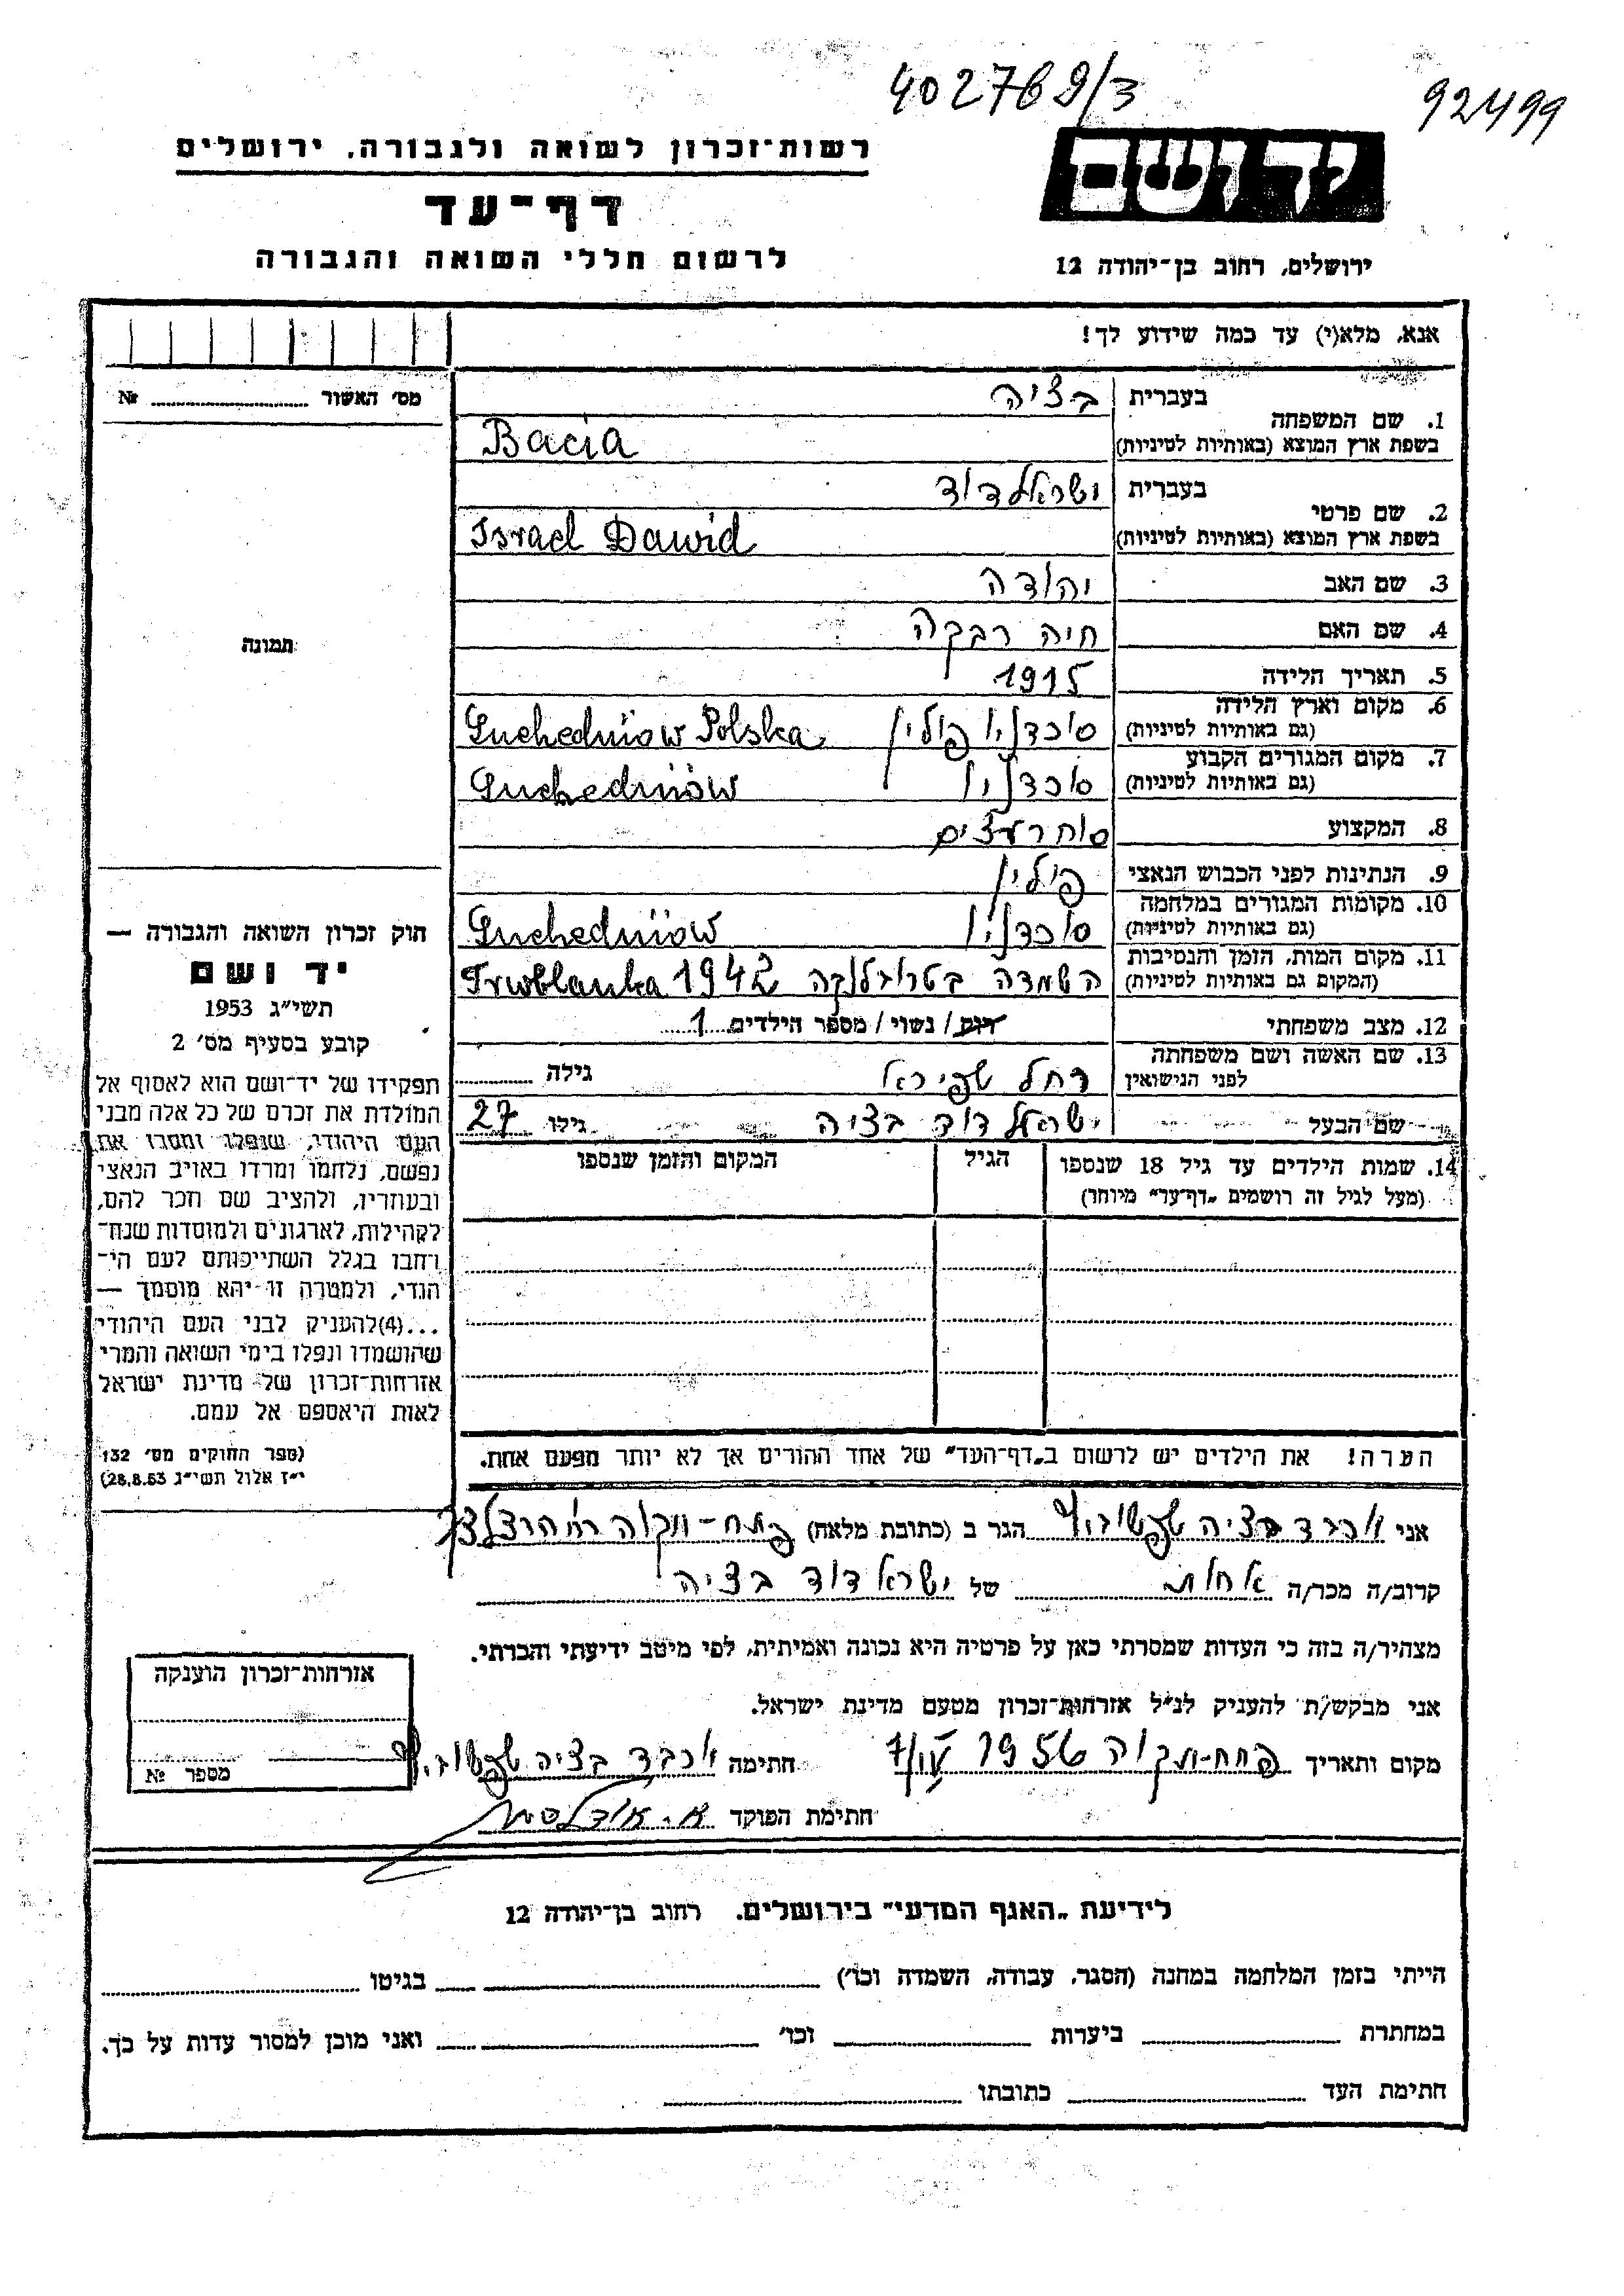 402769/3
92499
יד ושם
רשות־זכרון לשואה ולגבורה, ירושלים
דף־עד
לרשום חללי השואה והגבורה
ירושלים, רחוב בן־יהודה 12
אנא, מלא(י) עד כמה שידוע לך!
מס׳ האשור № 
1. שם המשפחה
בעברית בציה
בשפת ארץ המוצא (באותיות לטיניות) Bacia
2. שם פרטי
בעברית ישראל דוד
בשפת ארץ המוצא (באותיות לטיניות) Israel Dawid
3. שם האב יהודה
4. שם האם חיה רבקה
5. תאריך הלידה 1915
6. מקום וארץ הלידה
(גם באותיות לטיניות) סוכדניו פולין Suchedniów Polska
7. מקום המגורים הקבוע
(גם באותיות לטיניות) סוכדניו Suchedniów
8. המקצוע סוחר עצים
9. הנתינות לפני הכבוש הנאצי פולין
10. מקומות המגורים במלחמה
(גם באותיות לטיניות) סוכדניו Suchedniów
11. מקום המות, הזמן והנסיבות
(המקום גם באותיות לטיניות) השמדה בטרובלנקה 1942 Trwblanka
12. מצב משפחתי רווק / נשוי / מספר הילדים 1
13. שם האשה ושם משפחתה
לפני הנישואין רחל שפירא גילה
שם הבעל ישראל דוד בציה גילו 27
14. שמות הילדים עד גיל 18 שנספו
(מעל לגיל זה רושמים „דף־עד״ מיוחד)
הגיל
המקום והזמן שנספו
הערה! את הילדים יש לרשום ב„דף־העד״ של אחד ההורים אך לא יותר מפעם אחת.
תמונה
חוק זכרון השואה והגבורה —
יד ושם
תשי״ג 1953
קובע בסעיף מס׳ 2
תפקידו של יד־ושם הוא לאסוף אל
המולדת את זכרם של כל אלה מבני
העם היהודי, שנפלו ומסרו את
נפשם, נלחמו ומרדו באויב הנאצי
ובעוזריו, ולהציב שם וזכר להם,
לקהילות, לארגונים ולמוסדות שנח־
רחבו בגלל השתייכותם לעם היו־
הודי, ולמטרה זו יהא מוסמך —
...(4)להעניק לבני העם היהודי
שהושמדו ונפלו בימי השואה והמרי
אזרחות־זכרון של מדינת ישראל
לאות היאספם אל עמם.
(ספר החוקים מס׳ 132
י״ז אלול תשי״ג 28.8.53)
אני בציה הגר ב (כתובת מלאה) פתח-תקוה רח הרצל
קרוב/ה מכר/ה אחות של ישראל דוד בציה
מצהיר/ה בזה כי העדות שמסרתי כאן על פרטיה היא נכונה ואמיתית, לפי מיטב ידיעתי והכרתי.
אני מבקש/ת להעניק לנ״ל אזרחות־זכרון מטעם מדינת ישראל.
מקום ותאריך פתח-תקוה 1956 חתימה בציה
חתימת הפוקד
אזרחות־זכרון הוענקה
מספר №
לידיעת „האגף המדעי״ בירושלים. רחוב בן־יהודה 12
הייתי בזמן המלחמה במחנה (הסגר, עבודה, השמדה וכו׳) בגיטו
במחתרת ביערות וכו׳ ואני מוכן למסור עדות על כך.
חתימת העד כתובתו